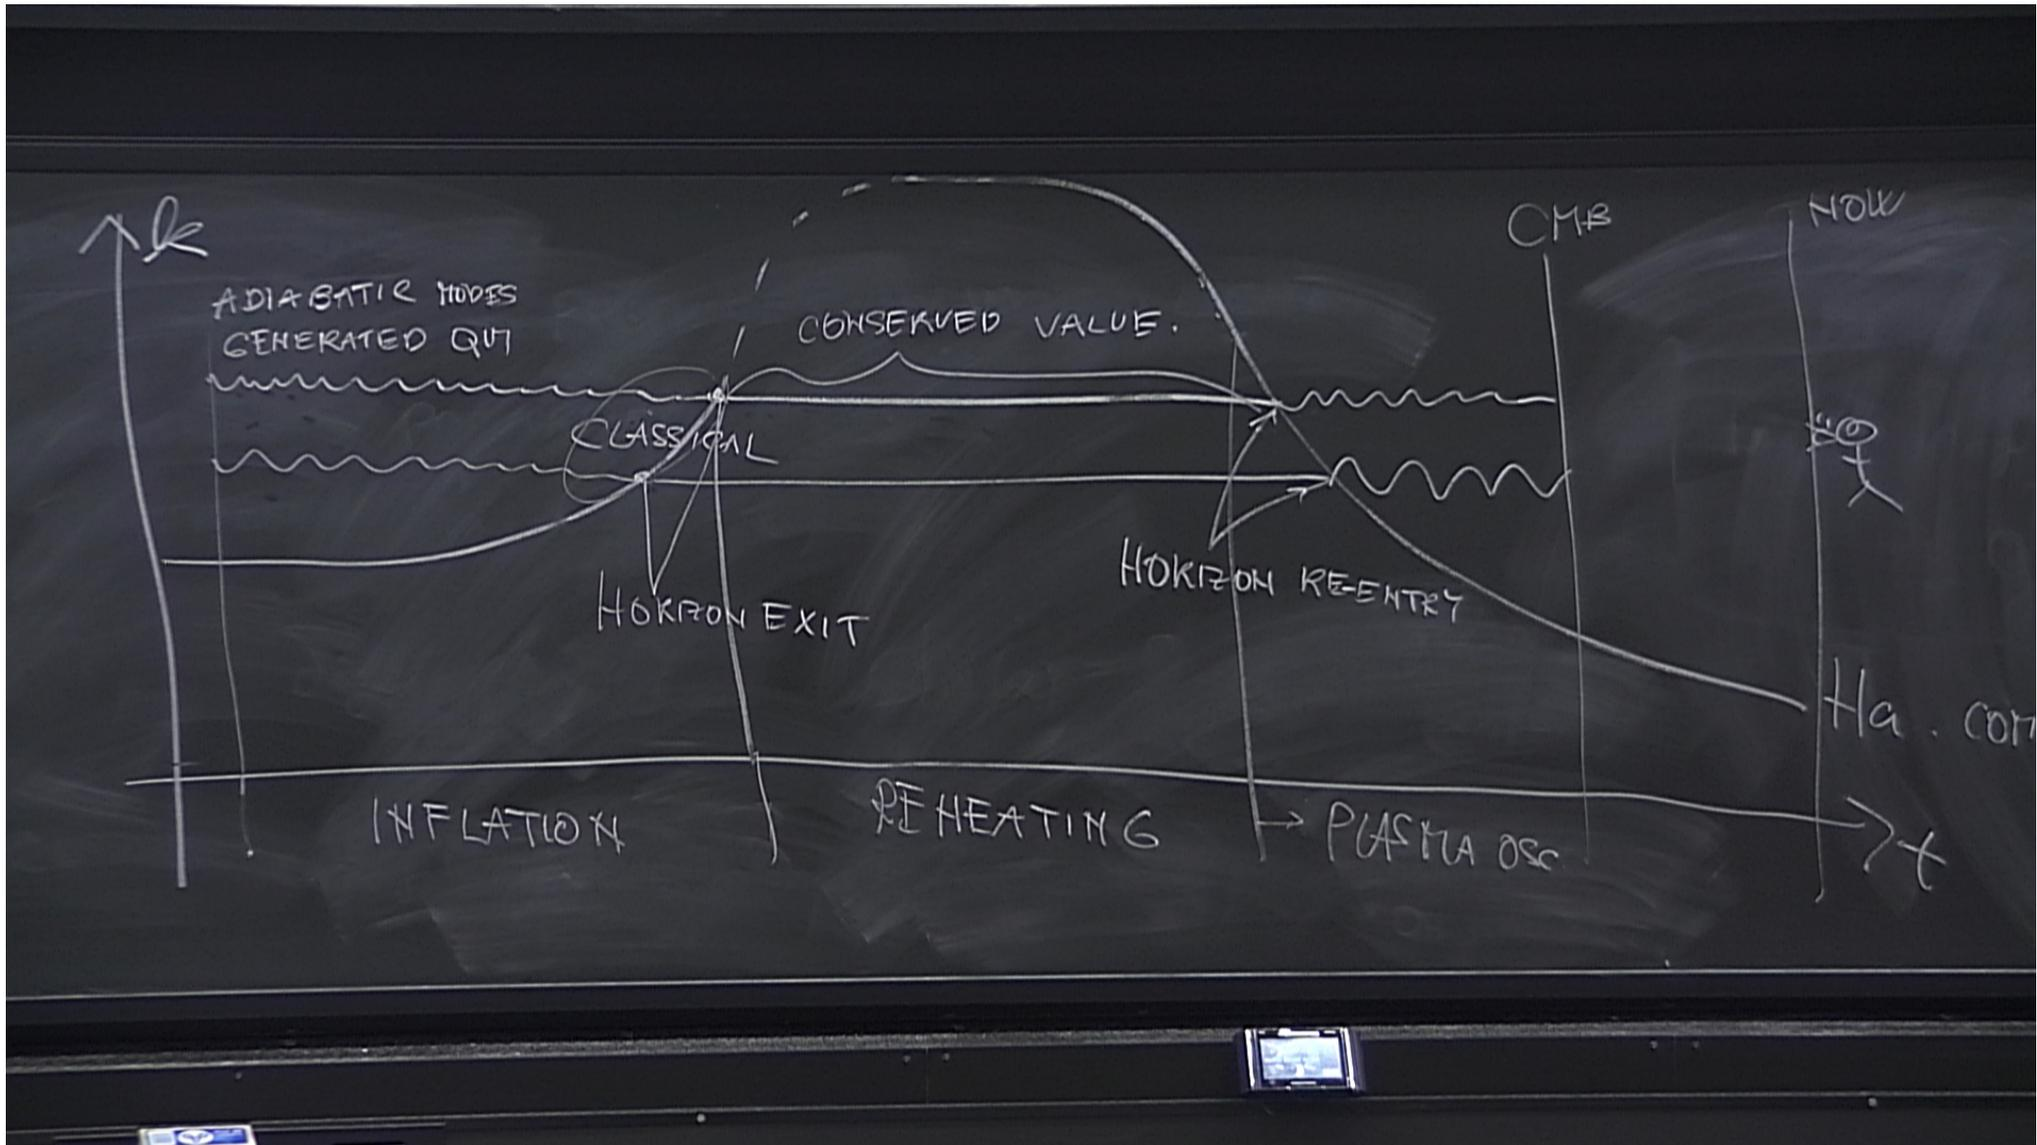 k
CMB
NOW
ADIABATIC MODES
GENERATED QM
CONSERVED VALUE.
CLASSICAL
HORIZON EXIT
HORIZON RE-ENTRY
Ha. COM
INFLATION
REHEATING
→ PLASMA OSC
t